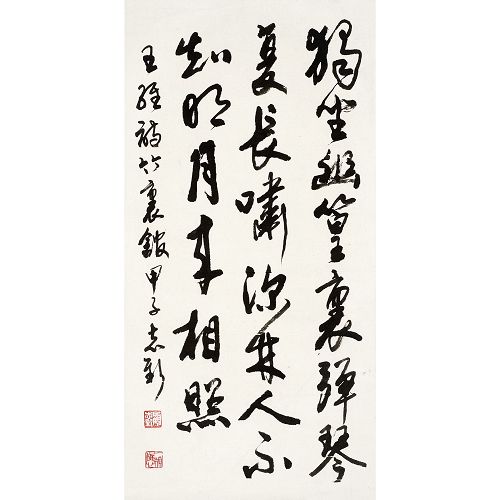 獨坐幽篁裏彈琴
复長嘯深林人不
知明月來相照
王維詩竹裏館甲子志